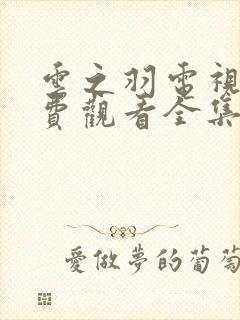 雲之羽電視
費觀看全集
愛做夢的葡萄